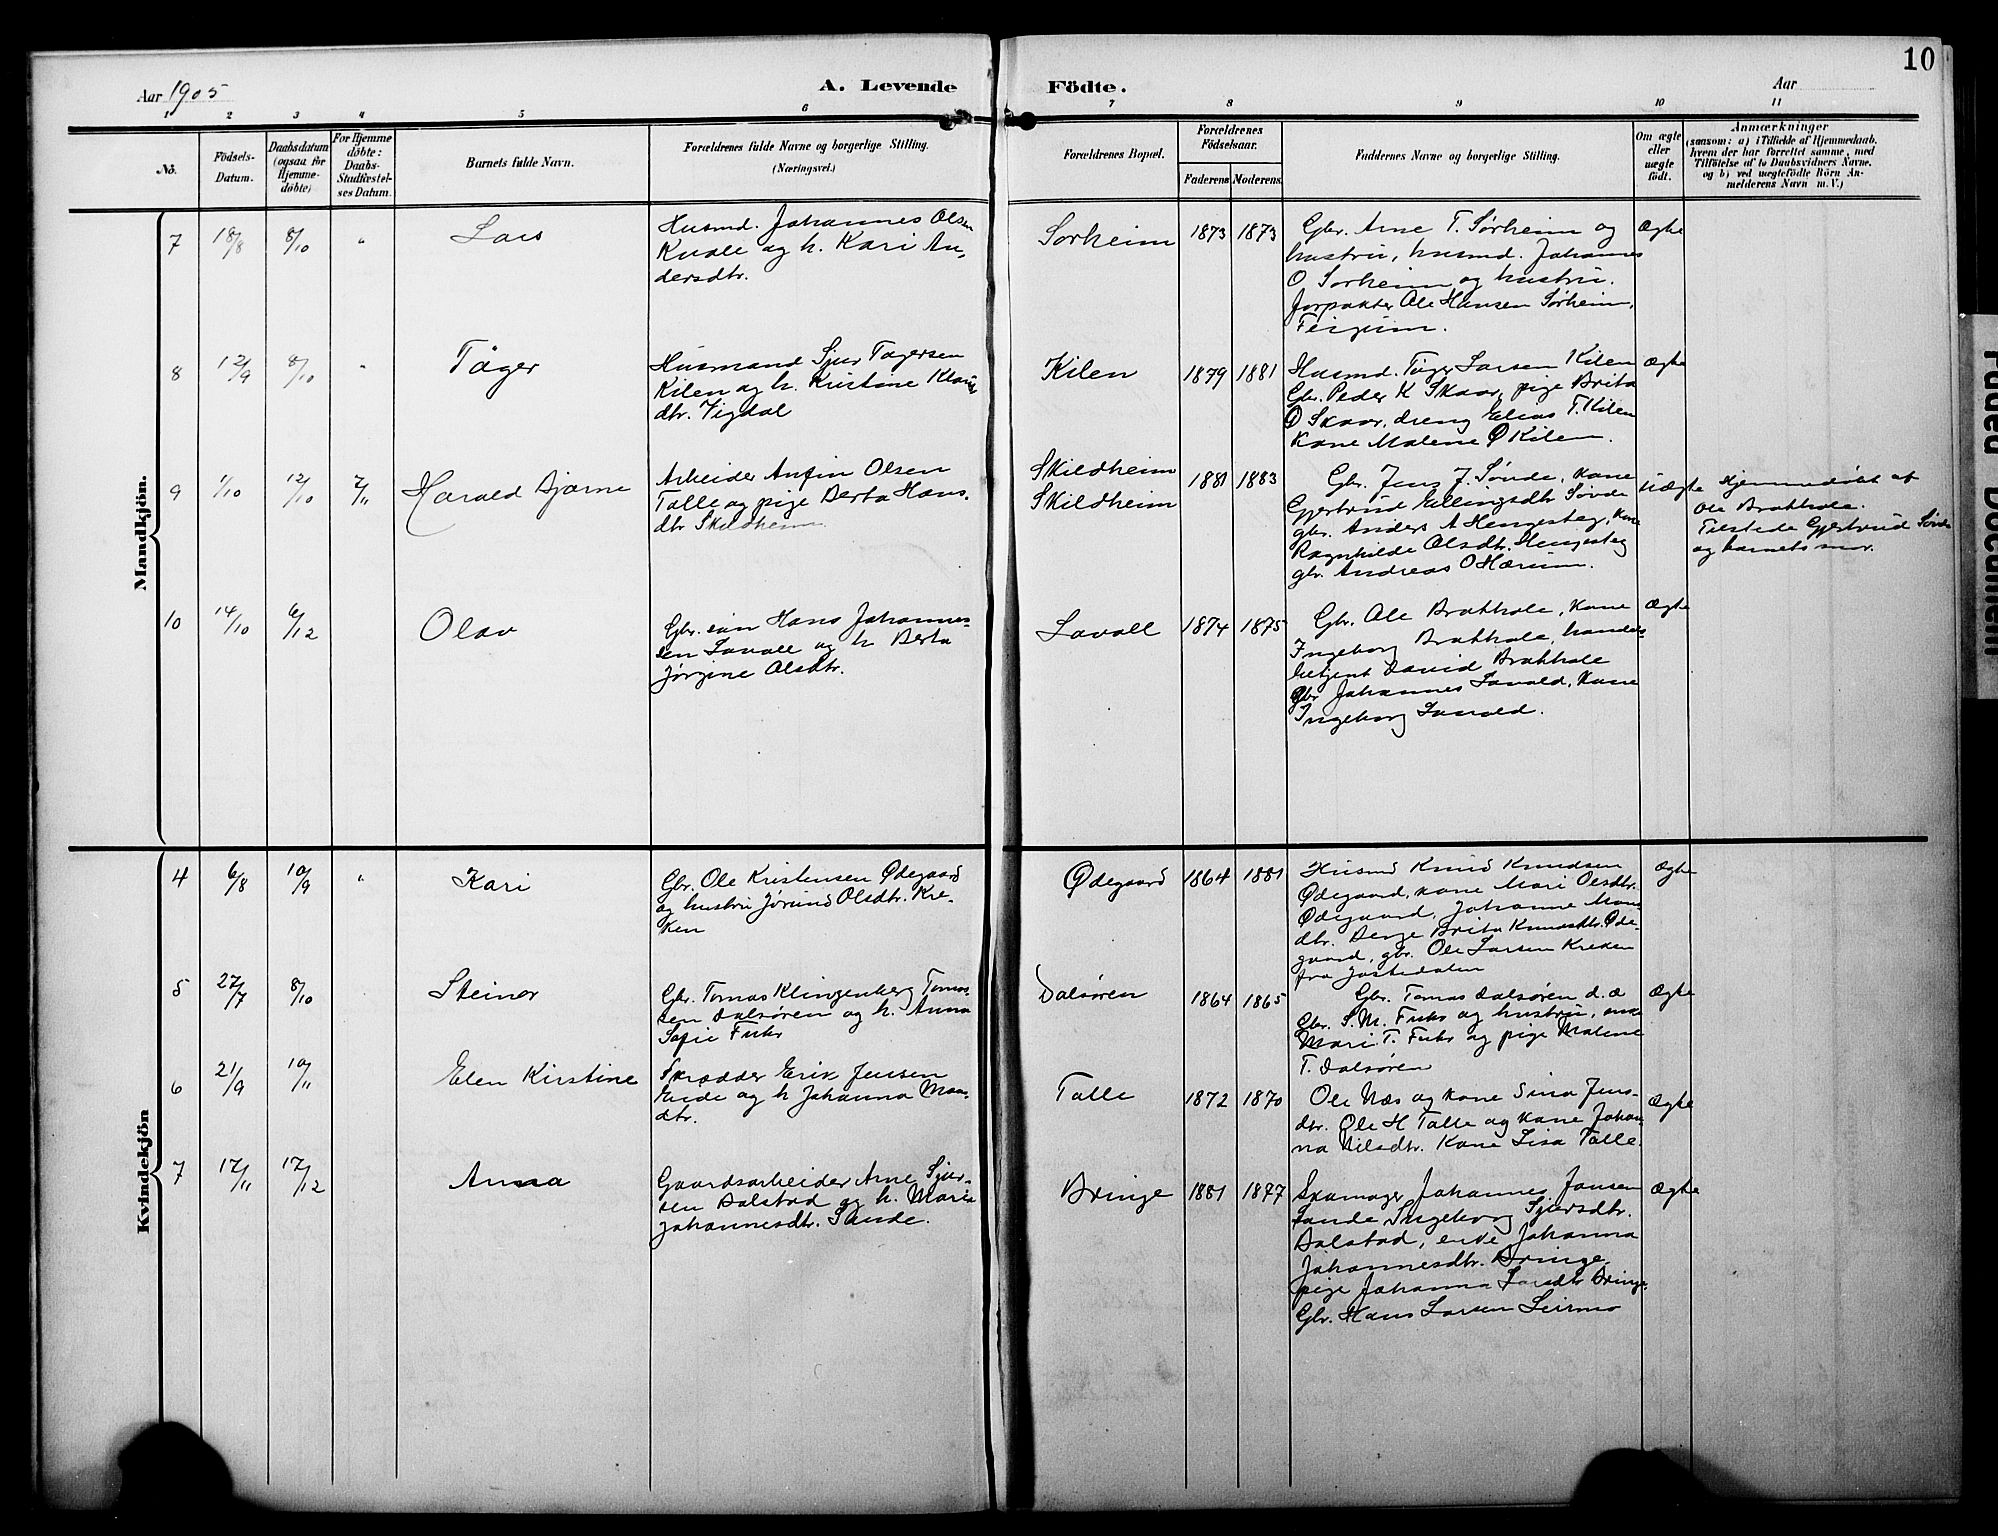 10
Aar 1905
A. Levende
Födte.
Aar
1 2 3 4 5 6 7 8 9 10 11
No.
Födsels-
Datum.
Daabsdatum
(ogsaa för
Hjemme-
döbte)
For Hjemme
döbte:
Daabs-
Stadfæstel-
ses Datum.
Barnets fulde Navn.
Forældrenes fulde Navne og borgerlige Stilling.
(Næringsvei.)
Forældrenes Bopæl.
Forældrenes
Födselsaar.
Faderens Moderens
Faddernes Navne og borgerlige Stilling.
Om ægte
eller
uægte
födt.
Anmærkninger
(saasom: a) i Tilfælde af Hjemmedaab,
hvem der har forrettet samme, med
Tilföielse af to Daabsvidners Navne,
og b) ved uægtefödte Börn An-
melderens Navn m. V.)
Mandkjön.
7 18/8 8/10 " Lars
Husmd. Johannes Olsen
Kvale og h. Kari An-
dersdtr.
Sørheim 1873 1873
Gbr. Arne T. Sørheim og
hustru, husmd. Johannes
O Sørheim og hustru.
forpakter Ole Hansen Sørheim,
Feigum.
Ægte
8 12/9 8/10 " Tøger
Husmand Sjur Tøgersen
Kilen og h. Kristine
dtr. Vigdal
Kilen 1879 1881
Husmd. Tøger Larsen Kilen
Gbr. Peder K Skaar, pige Brita
O Skaar, dreng Elias T. Kilen
Kone Malene Ø Kilen.
Ægte
9 1/10 12/10 7/11 Harald Bjarne
Arbeider Anfin Olsen
Talle og pige Berta Hans-
dtr Skildheim
Skildheim
Skildheim
1881 1883
Gbr. Jens J. Sønde, kone
Gjertrud Ellingsdtr Sønde
gbr. Anders A Hengesteg, kone
Ragnhilde Olsdtr. Hengesteg
gbr. Andreas O Hærum.
Uægte
Hjemmedøbt af
Ole Brathole.
Tilstede Gjertrud Sønde
og barnets mor.
10 14/10 6/12 Olav
Gbr. søn Hans Johannes-
sen Lavoll og h Berta
Jørgine Olsdtr.
Lavoll 1874 1875
Gbr. Ole Brathole, Kone
Ingeborg Brathole, handels
betjent David Brathole
Gbr Johannes Lavold, Kone
Ingeborg Lavold.
Ægte
Kvindekjön
4 6/8 10/9 " Kari
Gbr. Ole Kristensen Ødegaard
og hustru Jørund Olsdtr. Kre-
ken
Ødegaard 1864 1881
Husmd Knud Knudsen
Ødegaard, kone Mari Olsdtr.
Ødegaard, Johanne Mons-
dtr. Berge Brita Knudsdtr. Øde-
gaard, gbr. Ole Larsen Kreken
fra Jostedalen
Ægte
5 27/7 8/10 Steinor
Gbr. Tomas Klingenberg Tomas-
sen Dalsøren og h. Anna
Sofie Fuhr
Dalsøren 1864 1865
Gbr. Tomas Dalsøren d. æ
Gbr. S. M. Fuhr og hustru, enke
Mari T. Fuhr og pige Malene
T. Dalsøren
Ægte
6 21/9 10/11 Elen Kirstine
Skrædder Erik Jensen
Eide og h Johanna Mons-
dtr.
Talle 1872 1870
Ole Næs og kone Sina Jens-
dtr. Ole H Talle og kone Johan-
na Nilsdtr. Kone Lisa Talle.
Ægte
7 17/11 17/12 Anna
Gaardsarbeider Arne Sjur-
sen Dalstad og h. Maria
Johannesdtr. Sande.
Bringe 1881 1877
Skomager Johannes Jonsen
Sande Ingeborg Sjursdtr.
Dalstad, enke Johanna
Johannesdtr. Bringe
pige Johanna Larsdtr Bringe.
Gbr. Hans Larsen Leirmo
Ægte
Faded Document